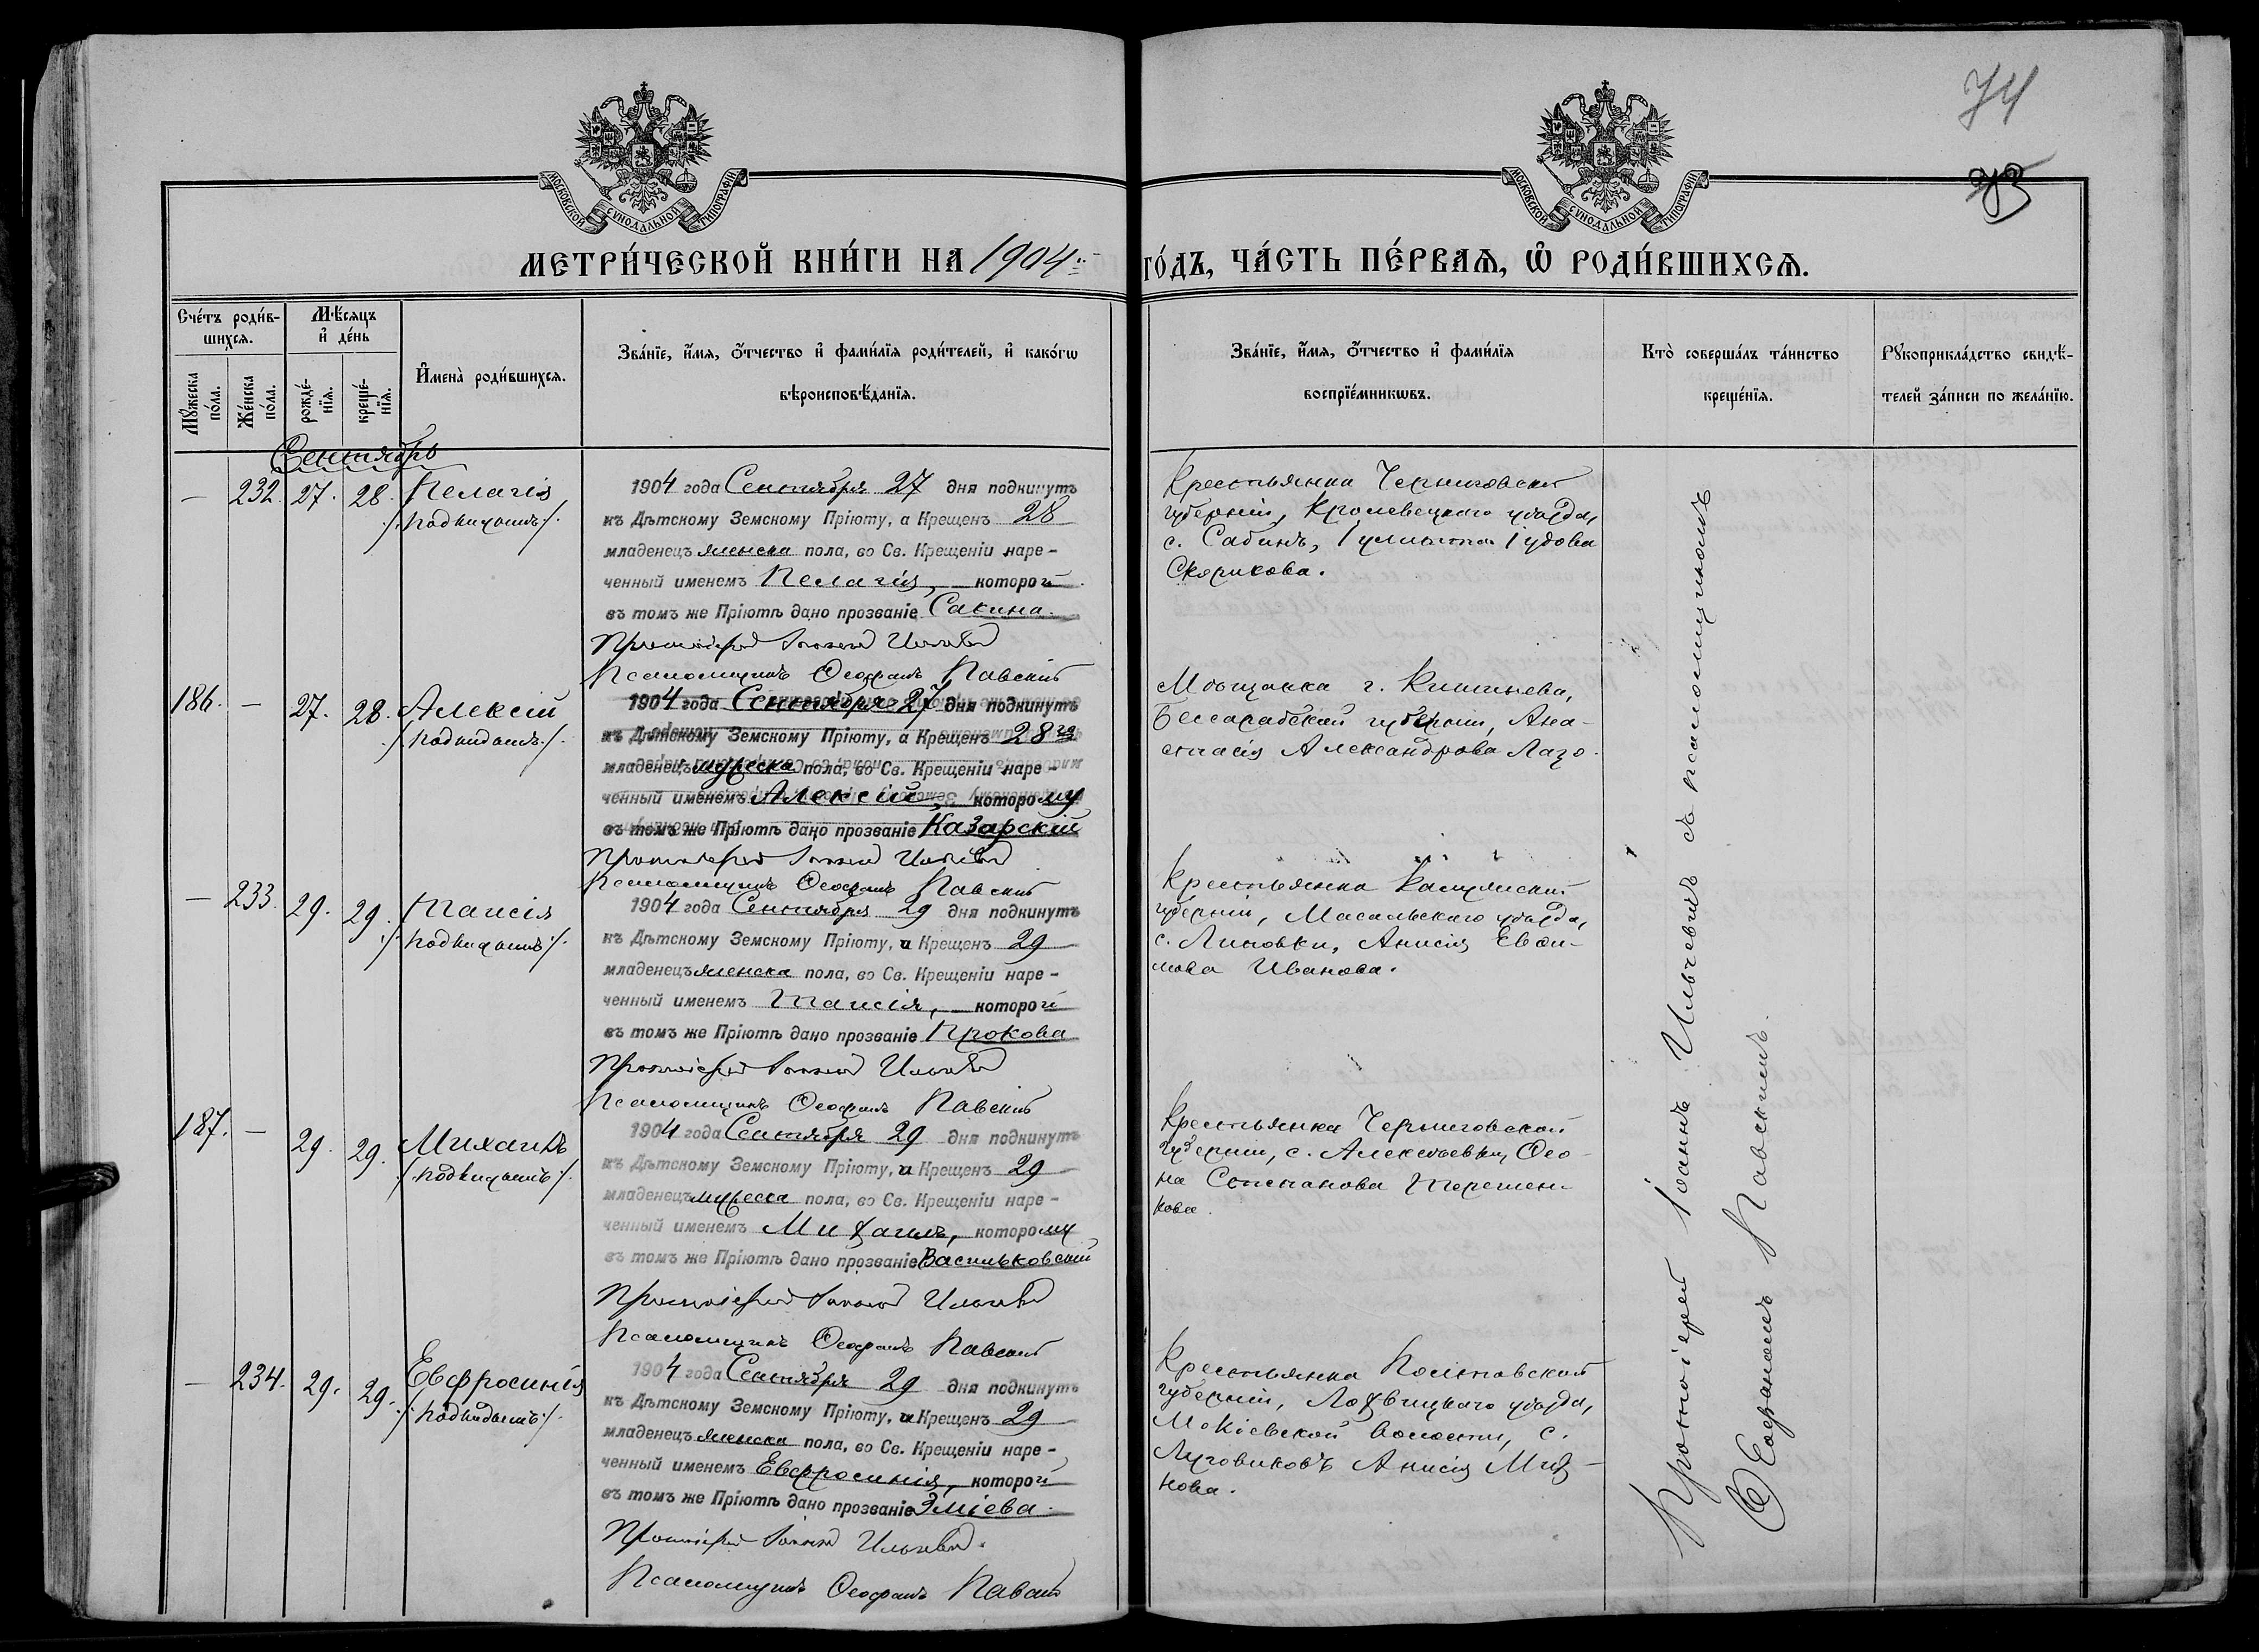 74
73
МОСКОВСКОЙ СѴНОДАЛЬНОЙ ТИПОГРАФІИ
МОСКОВСКОЙ СѴНОДАЛЬНОЙ ТИПОГРАФІИ
МЕТРИ́ЧЕСКОЙ КНИ́ГИ НА 1904
ГО́ДЪ, ЧА́СТЬ ПЕ́РВАѦ, Ѽ РОДИ́ВШИХСѦ.
Сче́тъ роди́в-
шихсѧ.
Мꙋ́жеска по́ла.
Же́нска по́ла.
Мѣ́сѧцъ
и҆ де́нь
рожде́-
нїѧ.
креще́-
нїѧ.
И҆мена̀ роди́вшихсѧ.
Зва́нїе, и҆́мѧ, ѻ҆́тчество и҆ фами́лїѧ роди́телей, и҆ како́гѡ
вѣроисповѣ́данїѧ.
Зва́нїе, и҆́мѧ, ѻ҆́тчество и҆ фами́лїѧ
воспрїе́мникѡвъ.
Кто̀ соверша́лъ та́инство
креще́нїѧ.
Рꙋкоприкла́дство свидѣ́-
телей за́писи по жела́нїю.
Сентябрь
— 232. 27. 28. Пелагія
/:подкидышъ:/.
1904 года Сентября 27 дня подкинутъ
къ Дѣтскому Земскому Пріюту, а Крещенъ 28
младенецъ женска пола, во Св. Крещеніи наре-
ченный именемъ Пелагія, которой
въ томъ же Пріютѣ дано прозваніе Сакина.
Протоіерей Іоаннъ Ильчевъ
Псаломщикъ Ѳеофанъ Павскій
Крестьянка Черниговской
губерніи, Кролевецкаго уѣзда,
с.
Скорикова.
186. — 27. 28. Алексій
/:подкидышъ:/.
1904 года Сентября 27 дня подкинутъ
къ Дѣтскому Земскому Пріюту, а Крещенъ 28го
младенецъ мужеска пола, во Св. Крещеніи наре-
ченный именемъ Алексій, которому
въ томъ же Пріютѣ дано прозваніе Казарскій
Протоіерей Іоаннъ Ильчевъ
Псаломщикъ Ѳеофанъ Павскій
Мѣщанка г. Кишинева,
Бессарабской губерніи, Ана-
стасія Александрова Лазо.
— 233. 29. 29. Таисія
/:подкидышъ:/.
1904 года Сентября 29 дня подкинутъ
къ Дѣтскому Земскому Пріюту, и Крещенъ 29
младенецъ женска пола, во Св. Крещеніи наре-
ченный именемъ Таисія, которой
въ томъ же Пріютѣ дано прозваніе Прокова
Протоіерей Іоаннъ Ильчевъ
Псаломщикъ Ѳеофанъ Павскій
Крестьянка Калужской
губерніи, Масальскаго уѣзда,
с. Липовки, Анисія Евѳи-
мова Иванова.
187. — 29. 29. Михаилъ
/:подкидышъ:/.
1904 года Сентября 29 дня подкинутъ
къ Дѣтскому Земскому Пріюту, и Крещенъ 29
младенецъ мужеска пола, во Св. Крещеніи наре-
ченный именемъ Михаилъ, которому
въ томъ же Пріютѣ дано прозваніе Васильковскій
Протоіерей Іоаннъ Ильчевъ
Псаломщикъ Ѳеофанъ Павскій
Крестьянка Черниговской
губерніи, с. Алексѣевки, Ѳео-
на Степанова Терешен-
кова.
— 234. 29. 29. Евфросинія
/:подкидышъ:/.
1904 года Сентября 29 дня подкинутъ
къ Дѣтскому Земскому Пріюту, и Крещенъ 29
младенецъ женска пола, во Св. Крещеніи наре-
ченный именемъ Евфросинія, которой
въ томъ же Пріютѣ дано прозваніе Эміева.
Протоіерей Іоаннъ Ильчевъ.
Псаломщикъ Ѳеофанъ Павскій
Крестьянка Полтавской
губерніи, Лохвицкаго уѣзда,
Мокіевской волости, с.
Луговиковъ Анисія Мих-
нова.
Протоіерей Іоаннъ Ильчевъ съ псаломщикомъ
Ѳеофаномъ Павскимъ.